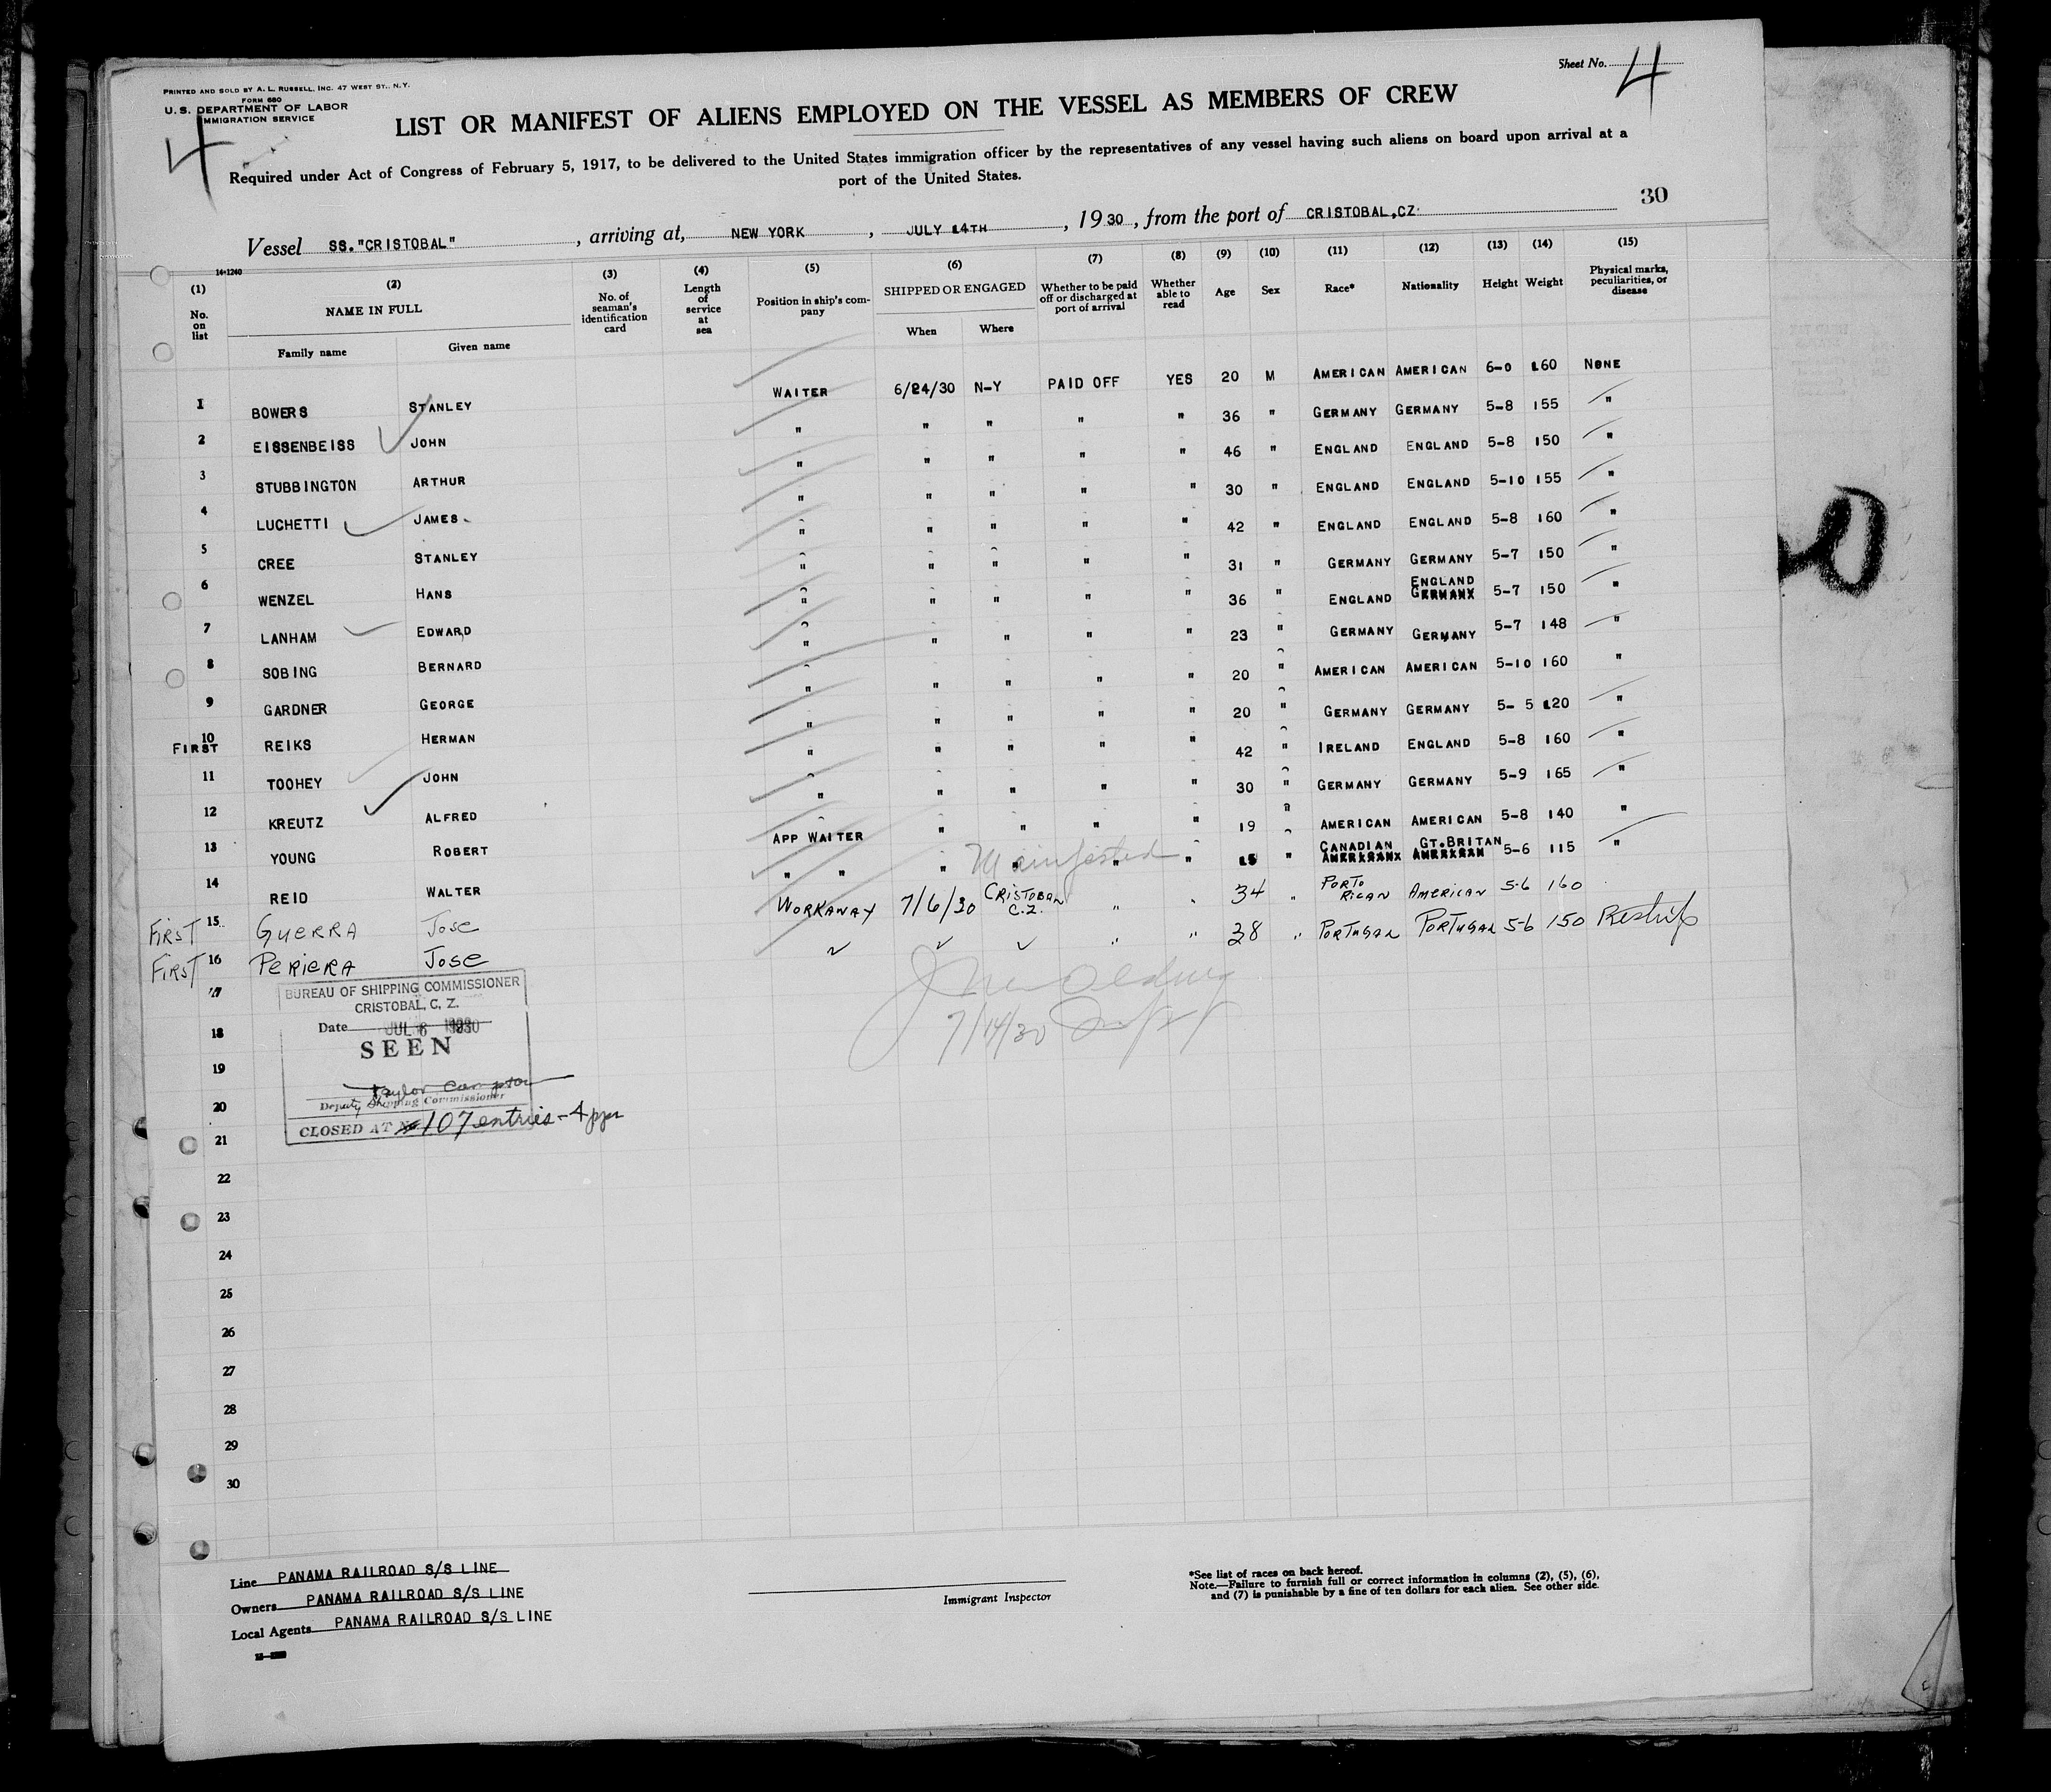 PRINTED AND SOLD BY A. L. RUSSELL, INC. 47 WEST ST., N.Y.
FORM 680
U. S. DEPARTMENT OF LABOR
IMMIGRATION SERVICE
4
Sheet No. 4
LIST OR MANIFEST OF ALIENS EMPLOYED ON THE VESSEL AS MEMBERS OF CREW
Required under Act of Congress of February 5, 1917, to be delivered to the United States immigration officer by the representatives of any vessel having such aliens on board upon arrival at a
port of the United States.
30
Vessel SS."CRISTOBAL", arriving at, NEW YORK, JULY 14TH, 1930, from the port of CRISTOBAL,CZ.
14-1240
(1) No. on list
(2) NAME IN FULL Family name Given name
(3) No. of seaman's identification card
(4) Length of service at sea
(5) Position in ship's company
(6) SHIPPED OR ENGAGED When Where
(7) Whether to be paid off or discharged at port of arrival
(8) Whether able to read
(9) Age
(10) Sex
(11) Race*
(12) Nationality
(13) Height
(14) Weight
(15) Physical marks, peculiarities, or disease
1 BOWERS STANLEY WAITER 6/24/30 N-Y PAID OFF YES 20 M AMERICAN AMERICAN 6-0 160 NONE
2 EISSENBEISS JOHN " " " " " 36 " GERMANY GERMANY 5-8 155 "
3 STUBBINGTON ARTHUR " " " " " 46 " ENGLAND ENGLAND 5-8 150 "
4 LUCHETTI JAMES " " " " " 30 " ENGLAND ENGLAND 5-10 155 "
5 CREE STANLEY " " " " " 42 " ENGLAND ENGLAND 5-8 160 "
6 WENZEL HANS " " " " " 31 " GERMANY GERMANY 5-7 150 "
7 LANHAM EDWARD " " " " " 36 " ENGLAND ENGLAND GERMANX 5-7 150 "
8 SOBING BERNARD " " " " " 23 " GERMANY GERMANY 5-7 148 "
9 GARDNER GEORGE " " " " " 20 " AMERICAN AMERICAN 5-10 160 "
FIRST 10 REIKS HERMAN " " " " " 20 " GERMANY GERMANY 5-5 120 "
11 TOOHEY JOHN " " " " " 42 " IRELAND ENGLAND 5-8 160 "
12 KREUTZ ALFRED " " " " " 30 " GERMANY GERMANY 5-9 165 "
13 YOUNG ROBERT APP WAITER " " " " 19 " AMERICAN AMERICAN 5-8 140 "
14 REID WALTER " " " " " " " CANADIAN GT.BRITAN 5-6 115 "
Mainfested
First 15 GUERRA Jose WORKAWAY 7/6/30 CRISTOBAL C.Z. " " 34 " PORTO RICAN AMERICAN 5-6 160
First 16 PERIERA Jose " " 38 " PORTUGAL PORTUGAL 5-6 150
17
18
19
20
21
22
23
24
25
26
27
28
29
30
BUREAU OF SHIPPING COMMISSIONER
CRISTOBAL, C. Z.
Date JUL 6 1930
SEEN
Taylor
Deputy Shipping Commissioner
CLOSED AT 107 entries - 4
7/14/30
Line PANAMA RAILROAD S/S LINE
Owners PANAMA RAILROAD S/S LINE
Local Agents PANAMA RAILROAD S/S LINE
Immigrant Inspector
*See list of races on back hereof.
Note.—Failure to furnish full or correct information in columns (2), (5), (6),
and (7) is punishable by a fine of ten dollars for each alien. See other side.